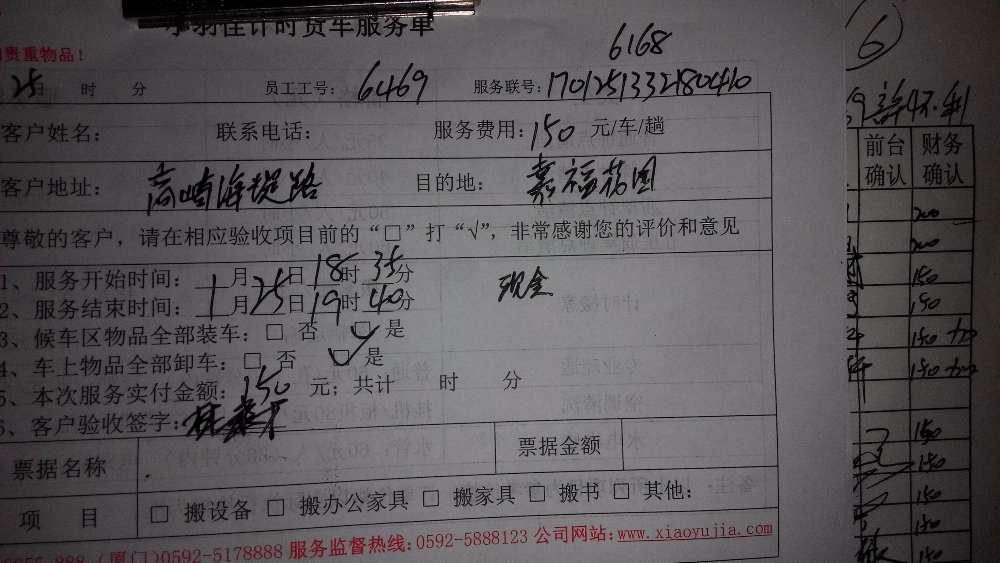 小羽佳计时货车服务单
贵重物品！
6168
25 时 分 员工工号：6469 服务联号：1701251332180410
客户姓名： 联系电话： 服务费用：150 元/车/趟
客户地址：高崎海堤路 目的地：嘉福花园
尊敬的客户，请在相应验收项目前的“□”打“√”，非常感谢您的评价和意见
1、服务开始时间：1月25日18时35分
现金
2、服务结束时间：1月25日19时40分
3、候车区物品全部装车：□ 否 ☑ 是
4、车上物品全部卸车：□ 否 ☑ 是
5、本次服务实付金额：150 元；共计 时 分
6、客户验收签字：
票据名称 票据金额
项 目 □ 搬设备 □ 搬办公家具 □ 搬家具 □ 搬书 □ 其他：
(厦门)0592-5178888 服务监督热线:0592-5888123 公司网站:www.xiaoyujia.com
6
前台确认 财务确认
200
200
150
150
150
150
150
150
150
150
150